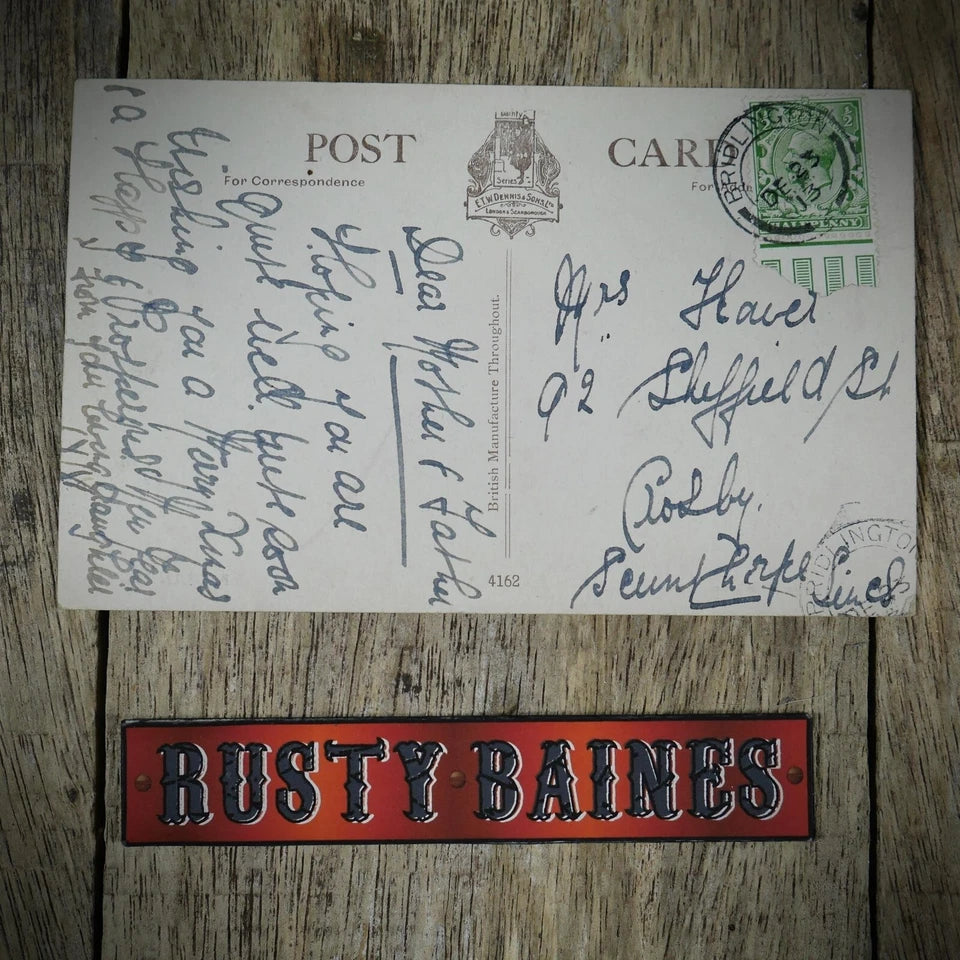 POST CARD
For Correspondence
For Addre
Dainty
Series
E.T.W. DENNIS & SONS, LTD
LONDON & SCARBOROUGH
BRIDLINGTON
DE 23
13
HALFPENNY
British Manufacture Throughout.
4162
Dear Mother & Father
Hoping you are
Quite well. quite soon
Wishing you a Merry Xmas
& a Happy & Prosperous New Year
from your loving daughter
Mrs Haver
92 Sheffield St
Crosby.
Scunthorpe Lincs
BRIDLINGTON
RUSTY BAINES